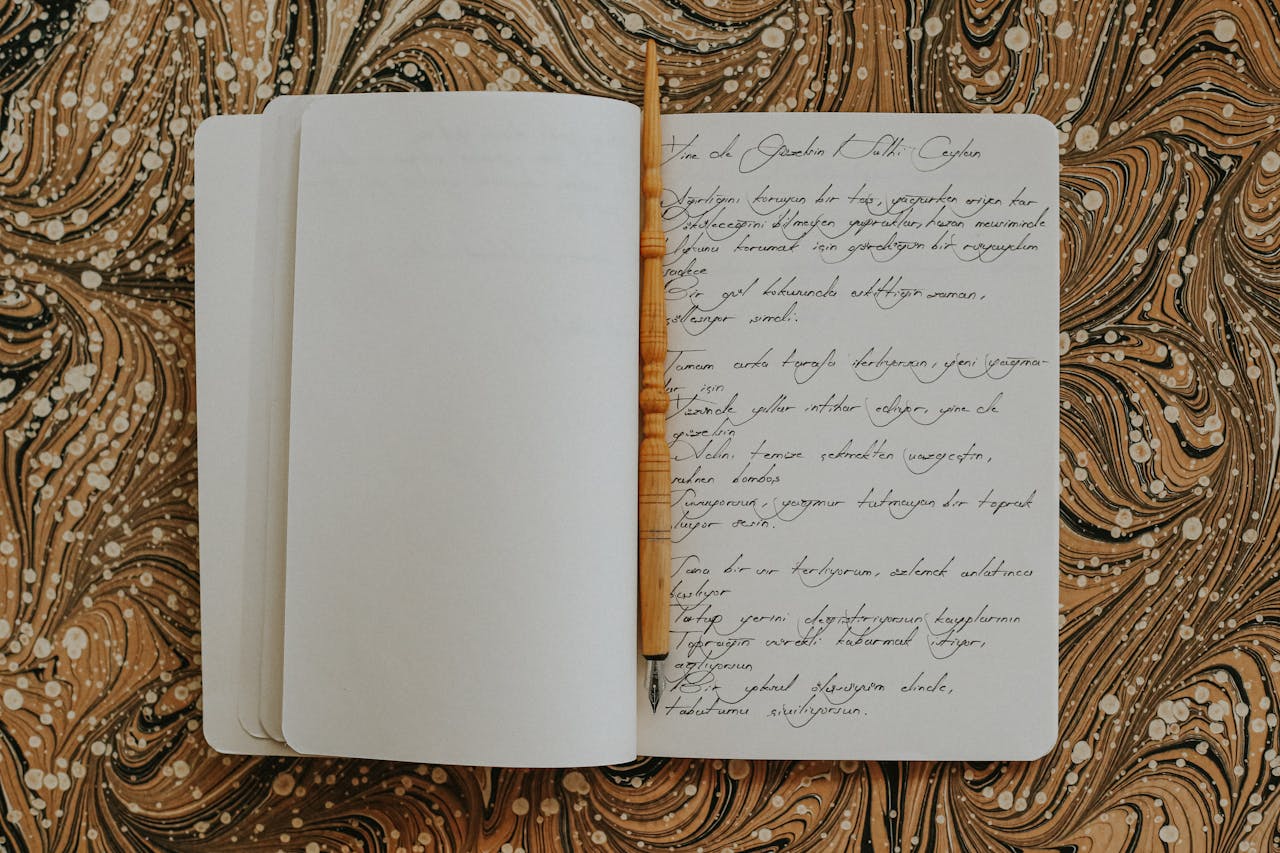 Yine de Güzelsin Nuthi Ceylan
Ağırlığını koruyan bir taş, yağarken eriyen kar
Döküleceğini bilmeyen yapraklar, hazan mevsiminde
korumak için gördüğüm bir rüyaydın
sadece
Bir gül kokusunda eskittiğin zaman,
şimdi.
Tamam arka tarafa ilerliyorsun, yeni yağma-
lar için
Yüzünde yıllar intihar ediyor, yine de
güzelsin
temize çekmekten vazgeçtin,
sahnen bomboş
yağmur tutmayan bir toprak
sesin.
Sana bir sır terliyorum, özlemek anlatınca
başlıyor
Tutup yerini değiştiriyorsun kayıplarının
Toprağın sürekli kabarmak istiyor,
ağlıyorsun
Bir yoksul ölüsüyüm elinde,
tabutumu siviliyorsun.